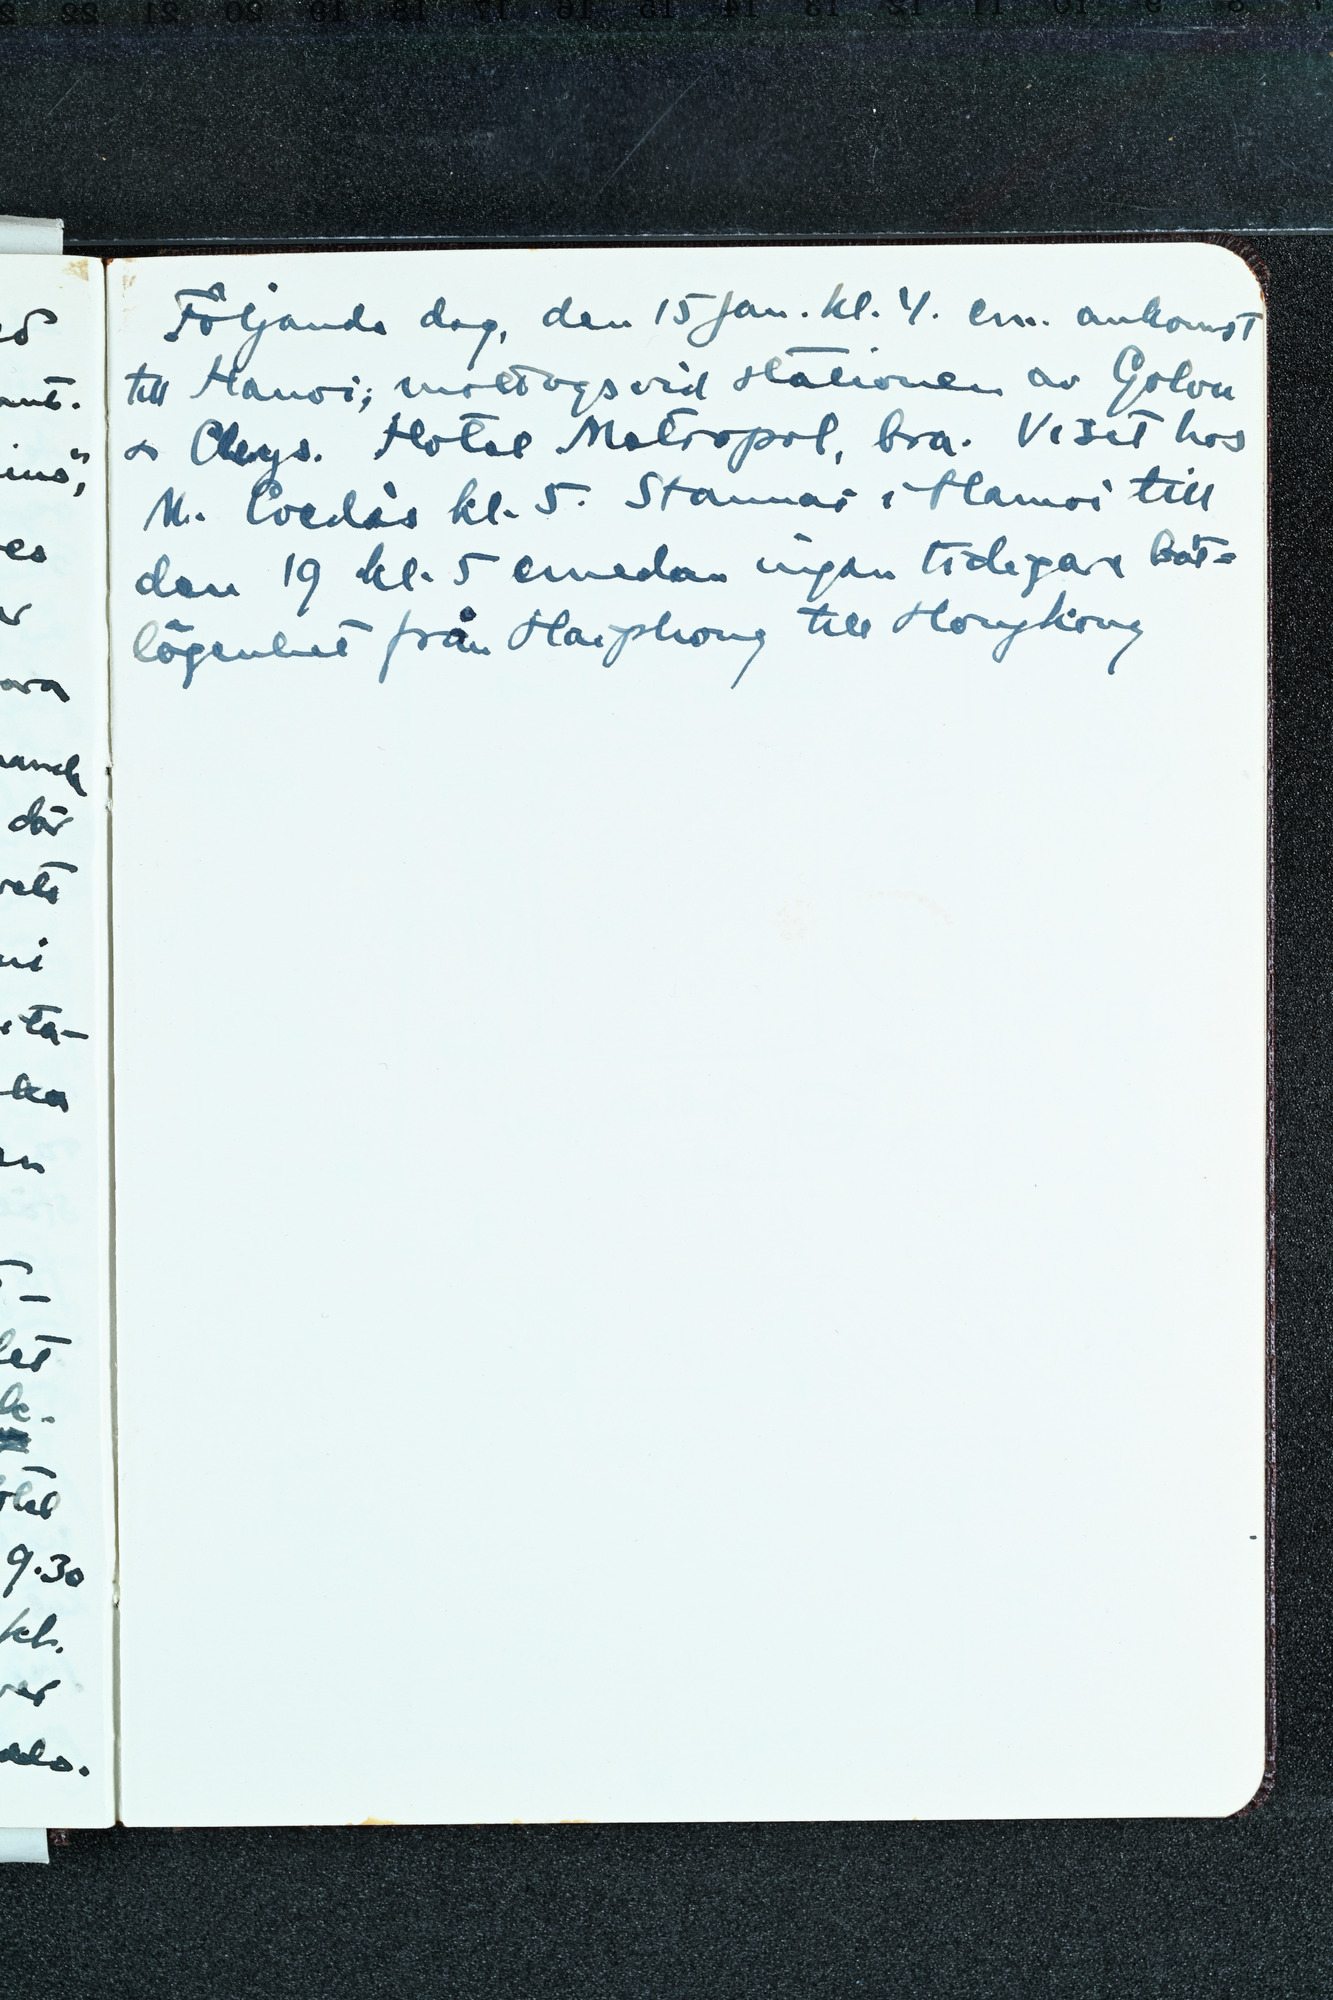 Följande dag, den 15 Jan. kl. 4. em. ankomst
till Hanoi; mottogs vid stationen av Golou
& Claeys. Hotel Metropol, bra. Visit hos
M. Coedès kl. 5. Stannar i Hanoi till
den 19 kl. 5 emedan ingen tidigare båt=
lägenhet från Haiphong till Hongkong
där
9.30